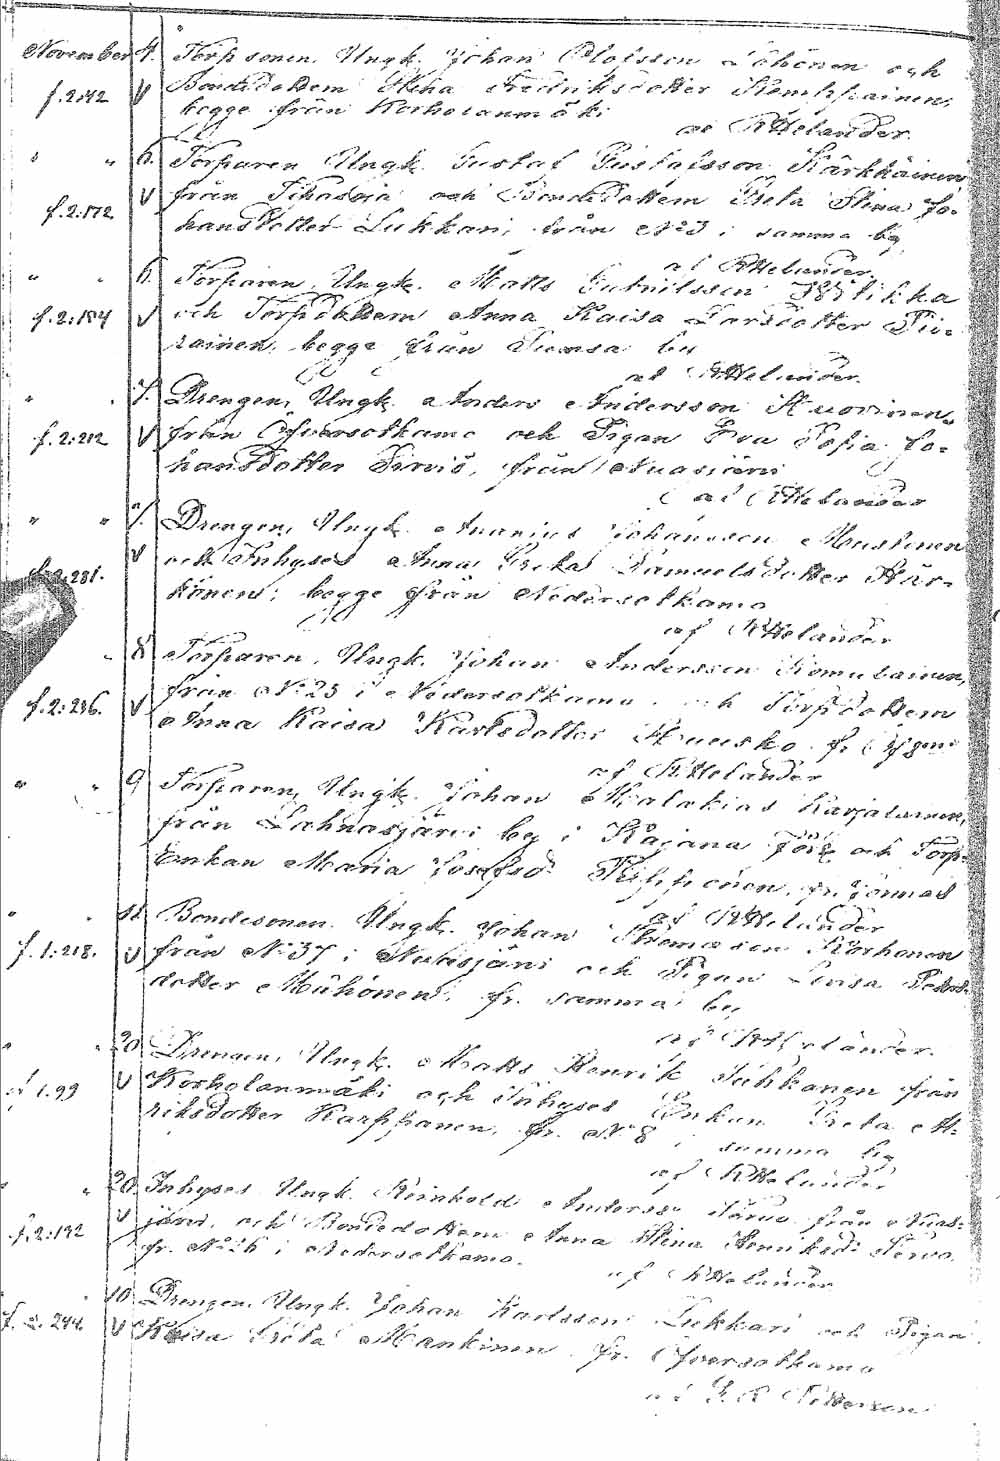 November 4. Torpsonen, Ungk. Johan Olofsson och
f. 2:142 V Bondedottern Stina Fredriksdotter Kemppainen,
begge från Korholanmäki
af RHelander.
" " 6. Torparen Ungk. Gustaf Gustafsson Kärkkäinen
f. 2:172 V från Tipasoja och Bondedottern Greta Stina Jo-
hansdotter Lukkari, från No 3 i samma by
af RHelander.
" " 6. Torparen, Ungk. Matts
f. 2:184 V och Torpdottern Anna Kaisa Larsdotter Pii-
rainen, begge från Sumsa by
af RHelander.
" " 7. Drengen, Ungk. Anders Andersson Huovinen
f. 2:212 V från Öfversotkamo och Pigan Eva Sofia Jo-
hansdotter Sirviö, från Nuasjärvi
af RHelander
" " 7. Drengen, Ungk. Ananias Johansson Mustonen
f. 2:281. V och Inhyses Anna Greta Samuelsdotter Här-
könen, begge från Nedersotkamo
af RHelander
" 8 Torparen, Ungk. Johan Andersson Romulainen,
f. 2:236. V från No 23 i Nedersotkamo och Torpdottern
Anna Kaisa Karlsdotter fr.
af RHelander
" " 9 Torparen, Ungk. Johan Malakias Karjalainen,
från Lahnasjärvi by i Kajana förs. och Torp-
Enkan Maria Josefsd: fr. Jormas
af RHelander
" " 11. Bondesonen, Ungk. Johan Thomasson Korhonen
f. 1:218. V från No 37 i Nuasjärvi och Pigan Lovisa Peters-
dotter Mähönen, fr. samma by
af RHelander.
" " 20 Drengen, Ungk. Matts Henrik Juhkanen från
f. 1.99 V Korholanmäki och Inhyses Enkan Greta
riksdotter Karppanen, fr. No 8 i samma by
af RHelander
" " 20. Inhyses Ungk. Reinhold Anderss: från Nuas-
f. 2:192 V järvi, och Bondedottern Anna Stina Henriksd:
fr. No 26 i Nedersotkamo.
af RHelander
" 10 Drengen, Ungk. Johan Karlsson Lukkari och Pigan
f. 2. 244. V Kaisa Greta Mankinen fr. Öfversotkamo
af